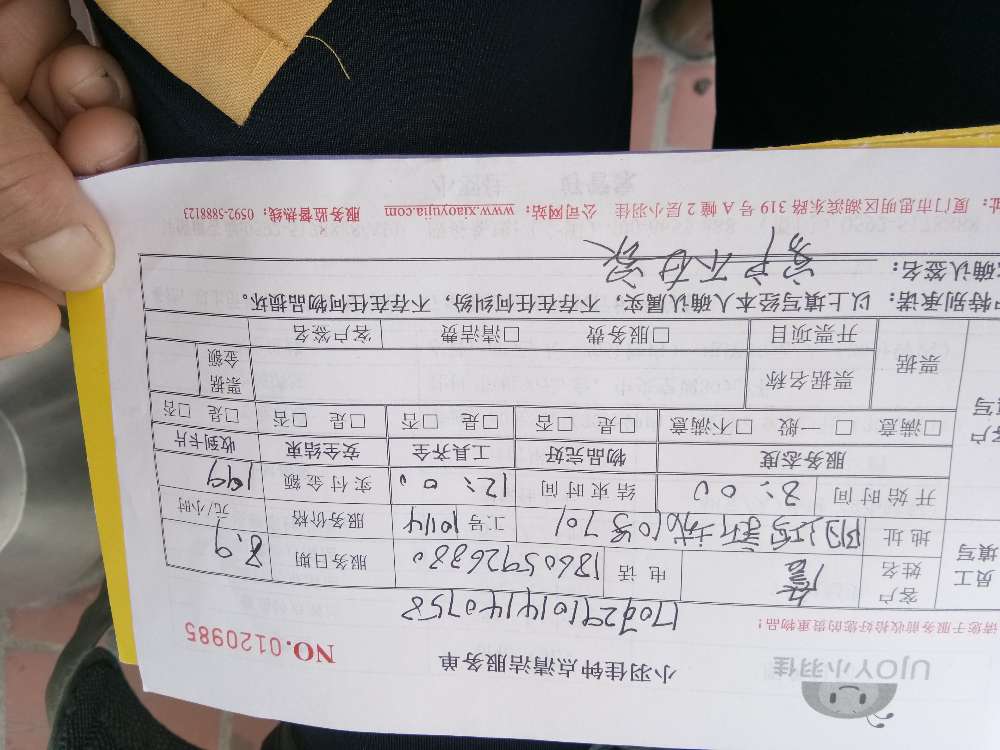 UJOY小羽佳
小羽佳钟点清洁服务单
NO.0120985
请您于服务前收拾好您的贵重物品!
客户姓名 詹 电话 13605926380 服务日期 8.9
地址 工号 10114 服务价格 元/小时
员工填写
开始时间 8:00 结束时间 12:00 实付金额 199
服务态度 物品完好 工具齐全 安全结束 收到卡片
□满意 □一般 □不满意 □是 □否 □是 □否 □是 □否 □是 □否
票据 票据名称 票据金额
开票项目 □服务费 □清洁费 客户签名
特别承诺:以上填写经本人确认属实,不存在任何纠纷,不存在任何物品损坏。
确认签名: 客户不在家
址:厦门市思明区湖滨东路319号A幢2层小羽佳 公司网站:www.xiaoyujia.com 服务监督热线:0592-5888123